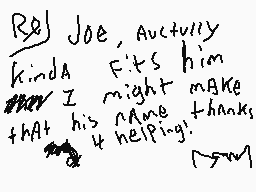 Re) Joe, Auctully
kinda Fits him
I might mAKe
thAt his nAme thanks
4 helping!